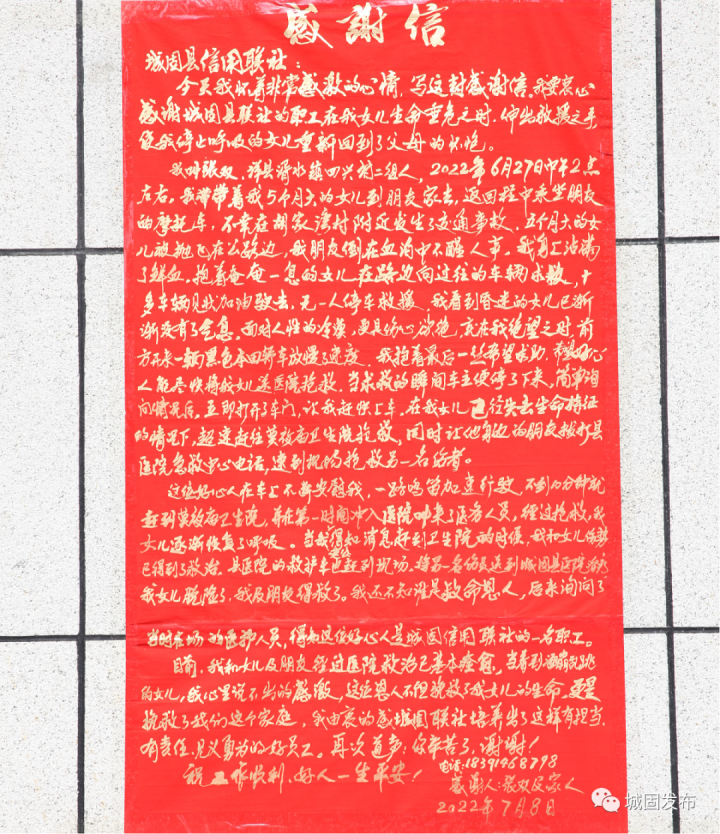 感謝信
城固县信用联社:
今天我怀着非常感激的心情，写这封感谢信，我要衷心
感谢城固县联社的职工在我女儿生命垂危之时，伸出救援之手，
使我停止呼吸的女儿重新回到了父母的怀抱。
我叫张双，洋县 镇四兴村二组人，2022年6月27日中午2点
左右，我带着我5个月大的女儿到朋友家去，返回程中乘坐朋友
的摩托车，不幸在胡家湾村附近发生了交通事故，五个月大的女
儿被抛飞在公路边，我朋友倒在血泊中不醒人事。我身上沾满
了鲜血。抱着奄奄一息的女儿在路边向过往的车辆求救，十
多车辆见状加油驶去，无一人停车救援，我看到昏迷的女儿已渐
渐没有了气息，面对人性的冷漠，更具伤心欲绝，就在我绝望之时，前
方开来一辆黑色本田轿车放慢了速度，我抱着最后一丝希望求助，希望好心
人能尽快将我女儿送医院抢救，当求救的瞬间车主便停了下来，简单询
问情况后，立即打开了车门，让我赶快上车，在我女儿已经失去生命特征
的情况下，超速赶往莫爷庙卫生院抢救，同时让他身边的朋友拨打县
医院急救中心电话，速到现场抢救另一名伤者。
这位好心人在车上不断安慰我，一路鸣笛加速行驶，不到10分钟就
赶到莫爷庙卫生院，并在第一时间冲入医院叫来了医务人员，经过抢救，我
女儿逐渐恢复了呼吸。当我得知消息赶到卫生院的时候，我和女儿伤势
已得到了救治，县医院的救护车也赶到现场，将另一名伤员送到城固县医院治疗
我女儿脱险了，我及朋友得救了。我还不知谁是救命恩人，后来询问了
当时在场的医护人员，得知这位好心人是城固信用联社的一名职工。
目前，我和女儿及朋友经过医院救治已基本痊愈，当看到活蹦乱跳
的女儿，我心里说不出的感激，这位恩人不但挽救了我女儿的生命，更是
挽救了我们这个家庭，我由衷的感城固联社培养出了这样有担当
有责任，见义勇为的好员工。再次道声：你辛苦了，谢谢！
祝工作顺利，好人一生平安！
电话：18391968798
感谢人：张双及家人
2022年7月8日
城固发布